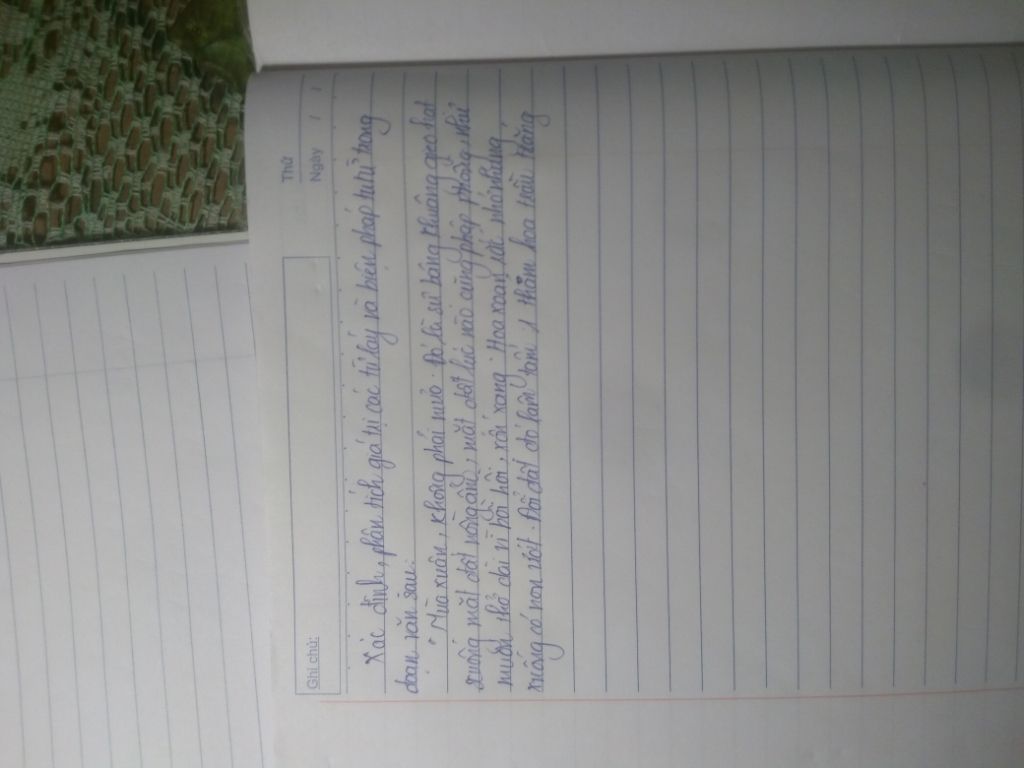 Ghi chú:
Thứ
Ngày / /
Xác định, phân tích giá trị các từ láy và biện pháp tu từ trong
đoạn văn sau:
"Mưa xuân, không phải mưa. Đó là sự bâng khuâng gieo hạt
xuống mặt đất nồng ấm, mặt đất lúc nào cũng phập phồng như
muốn thở dài vì bổi hổi, xốn xang. Hoa xoan rắc nhớ nhung
xuống cỏ non ướt đẫm. Đồi đất đỏ lấm tấm 1 thảm hoa trẩu trắng